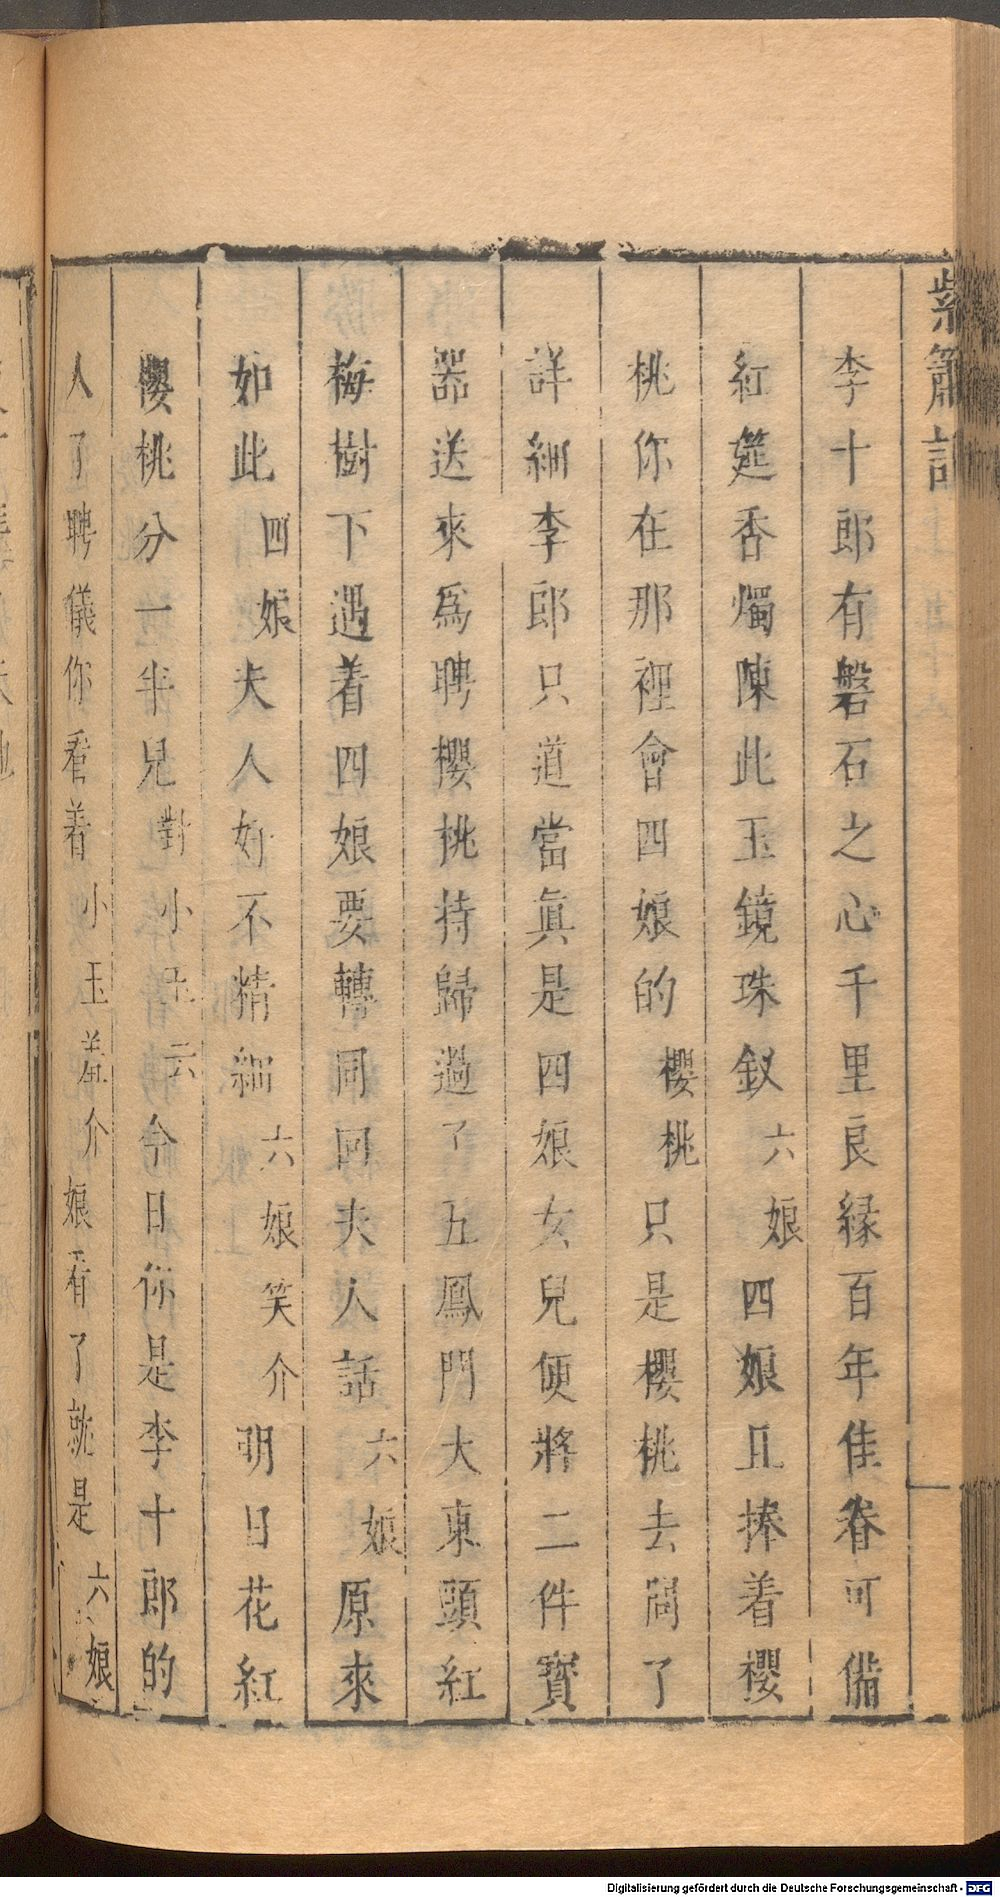 紫簫記
李十郎有磐石之心千里良縁百年佳眷可備
紅筵香燭陳此玉鏡珠釵六娘四娘且捧着櫻
桃你在那裡會四娘的櫻桃只是櫻桃去問了
詳細李郎只道當眞是四娘女兒便將二件寳
器送來爲聘櫻桃持歸過了五鳳門大東頭紅
梅樹下遇着四娘要轉同回夫人話六娘原來
如此四娘夫人好不精細六娘笑介明日花紅
櫻桃分一半兒對小玉云今日你是李十郎的
人了聘儀你看着小玉羞介娘看了就是六娘
Digitalisierung gefördert durch die Deutsche Forschungsgemeinschaft - DFG